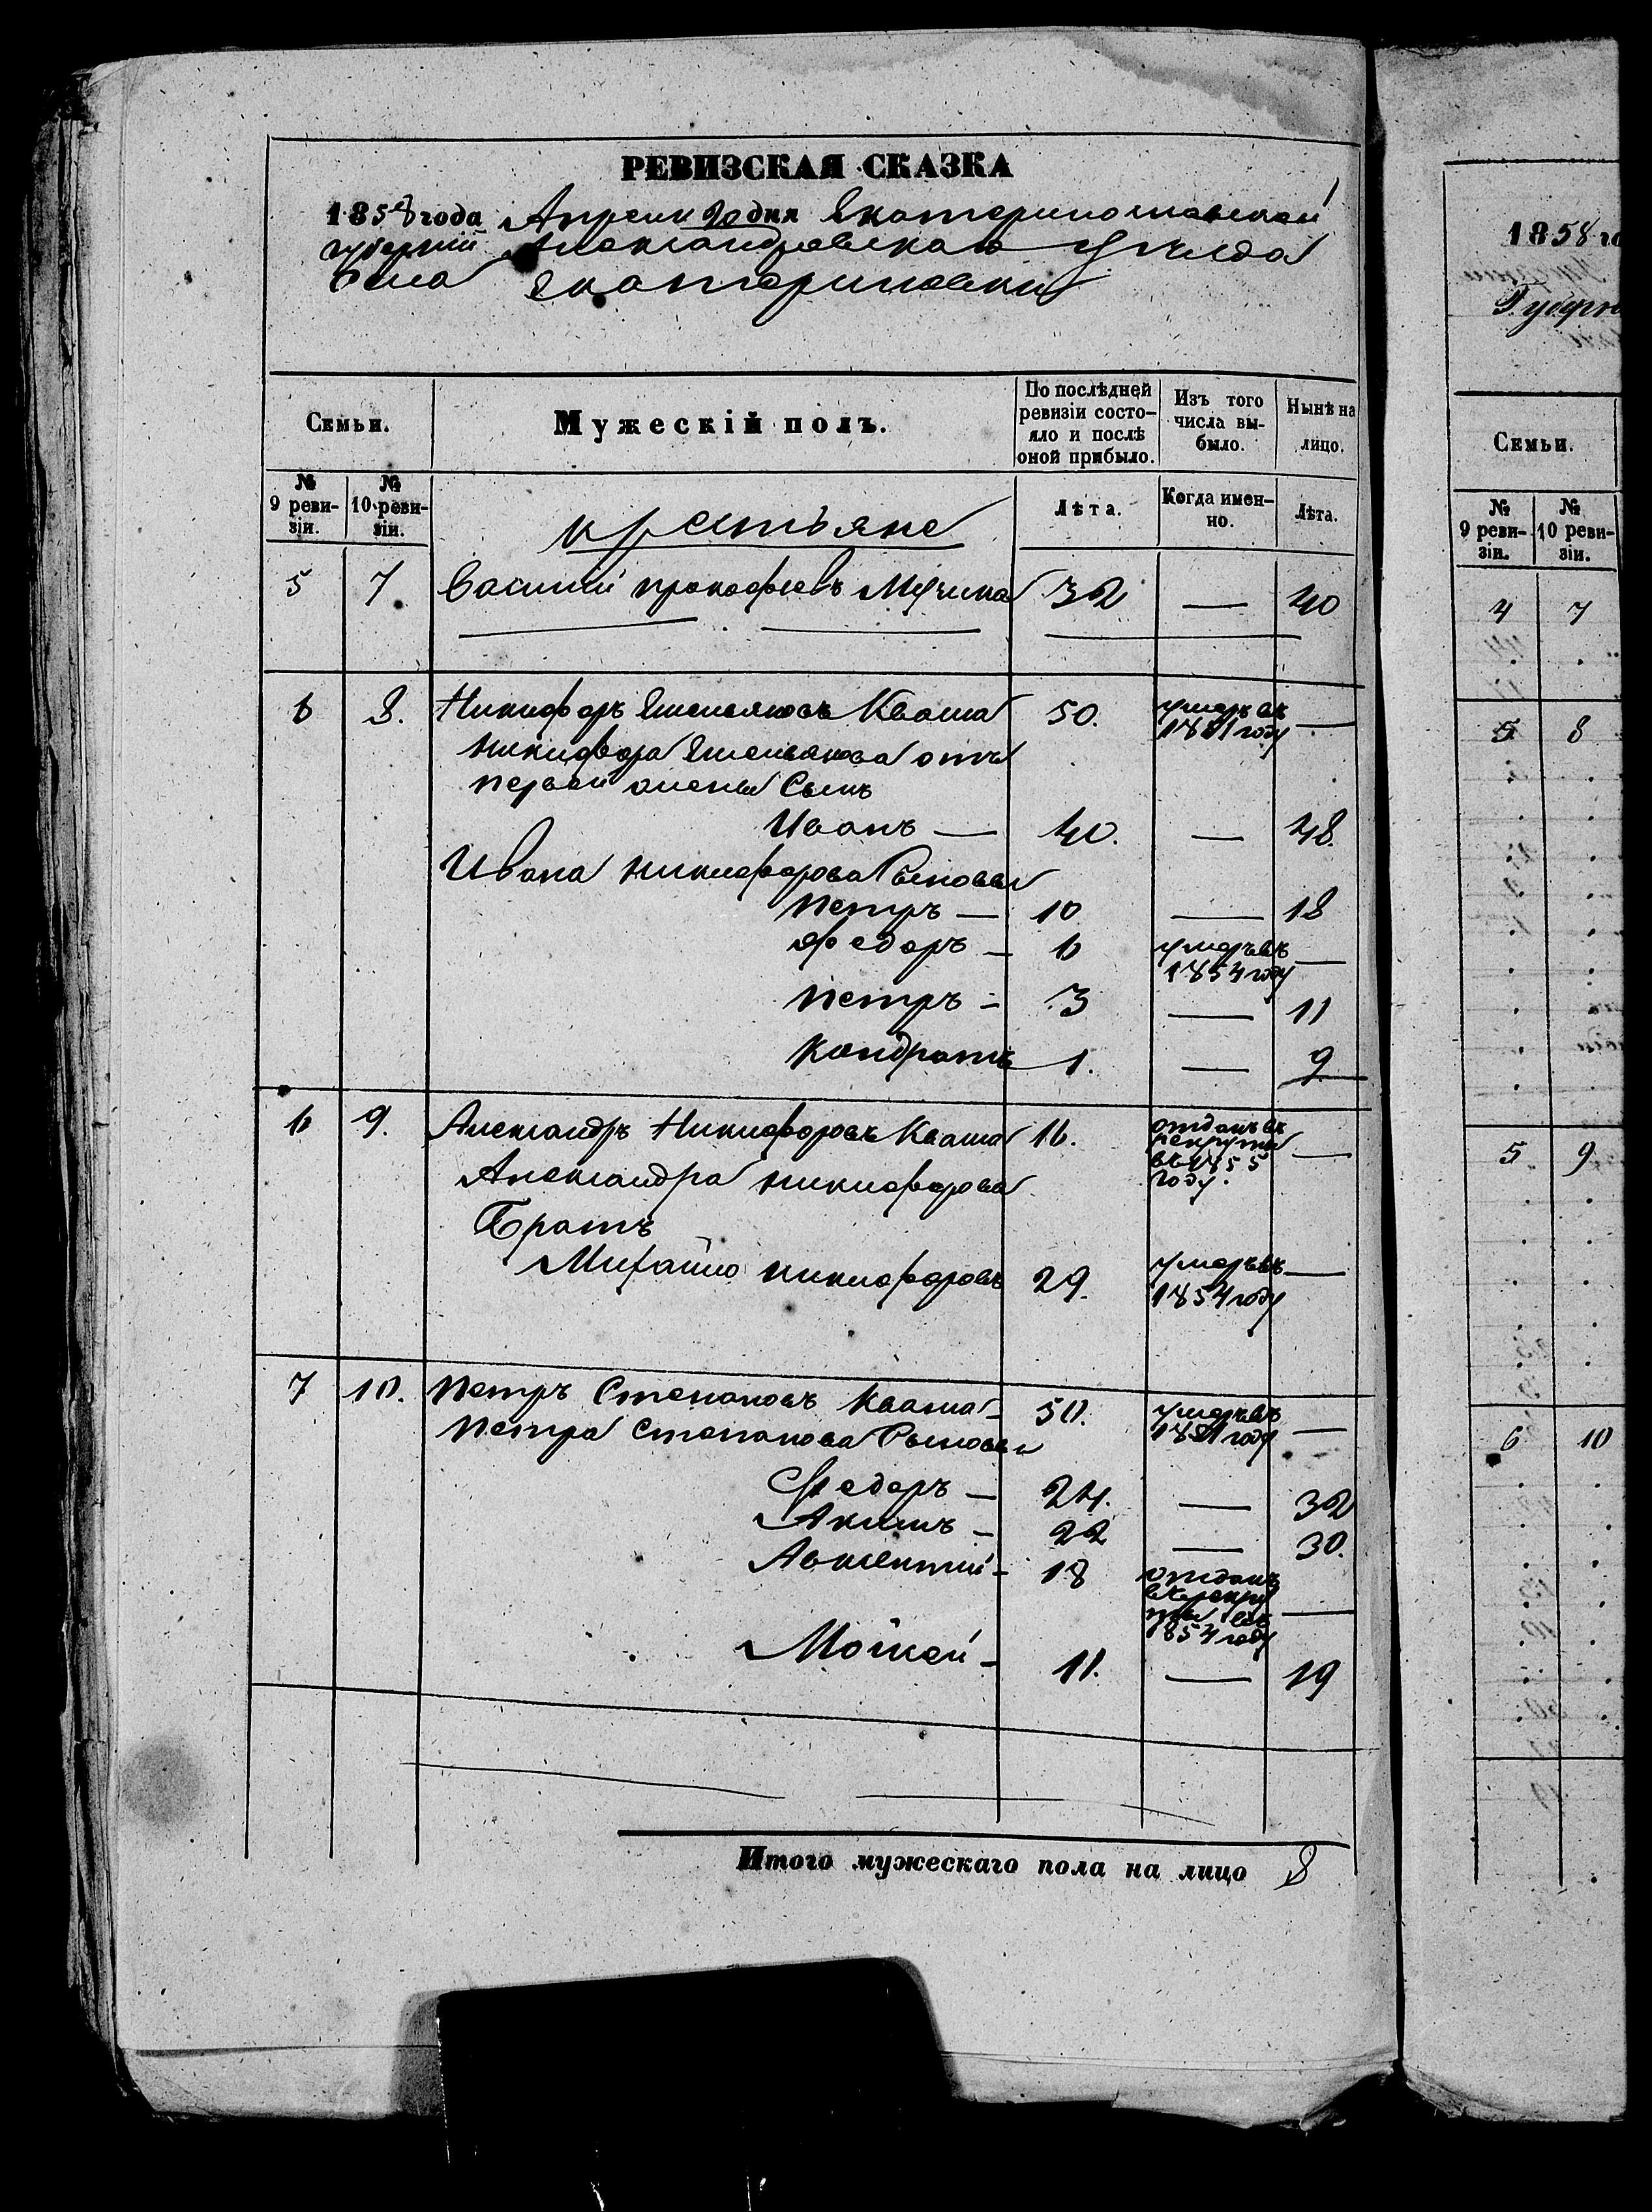 РЕВИЗСКАЯ СКАЗКА
1858 года Апреля 20 дня Екатеринославской
губернии Александровскаго уѣзда
Села Екатериновки
Семьи.
Мужескій полъ.
По послѣдней ревизіи состояло и послѣ оной прибыло.
Изъ того числа выбыло.
Нынѣ на лицо.
№ 9 ревизіи.
№ 10 ревизіи.
крестьяне
Лѣта.
Когда именно.
Лѣта.
5 7 Василий прокофьевъ 32 — 40
6 8. Никифоръ Емельяновъ Кваша 50. умеръ въ 1851 году —
Никифора Емельянова отъ
первой жены Сынъ
Иванъ — 40. — 48.
Ивана Никифорова Сыновья
Петръ — 10 — 18
Федоръ — 6 умеръ въ 1854 году —
Петръ — 3 — 11
Кондратъ 1. — 9
6 9. Александръ Никифоровъ Кваша 16. отданъ въ рекруты въ 1855 году. —
Александра Никифорова
Братъ
Михайло никифоровъ 29. умеръ въ 1854 году —
7 10. Петръ Степановъ Кваша — 50. умеръ въ 1851 году —
Петра Степанова Сыновья
Федоръ — 24. — 32
Акимъ — 22 — 30.
Авксентий — 18 отданъ въ рекруты въ 1854 году —
Мойсей — 11. — 19
Итого мужескаго пола на лицо 8
1858 го
Губерн
Семьи.
№ 9 ревизіи.
№ 10 ревизіи.
4 7
5 8
5 9
6 10